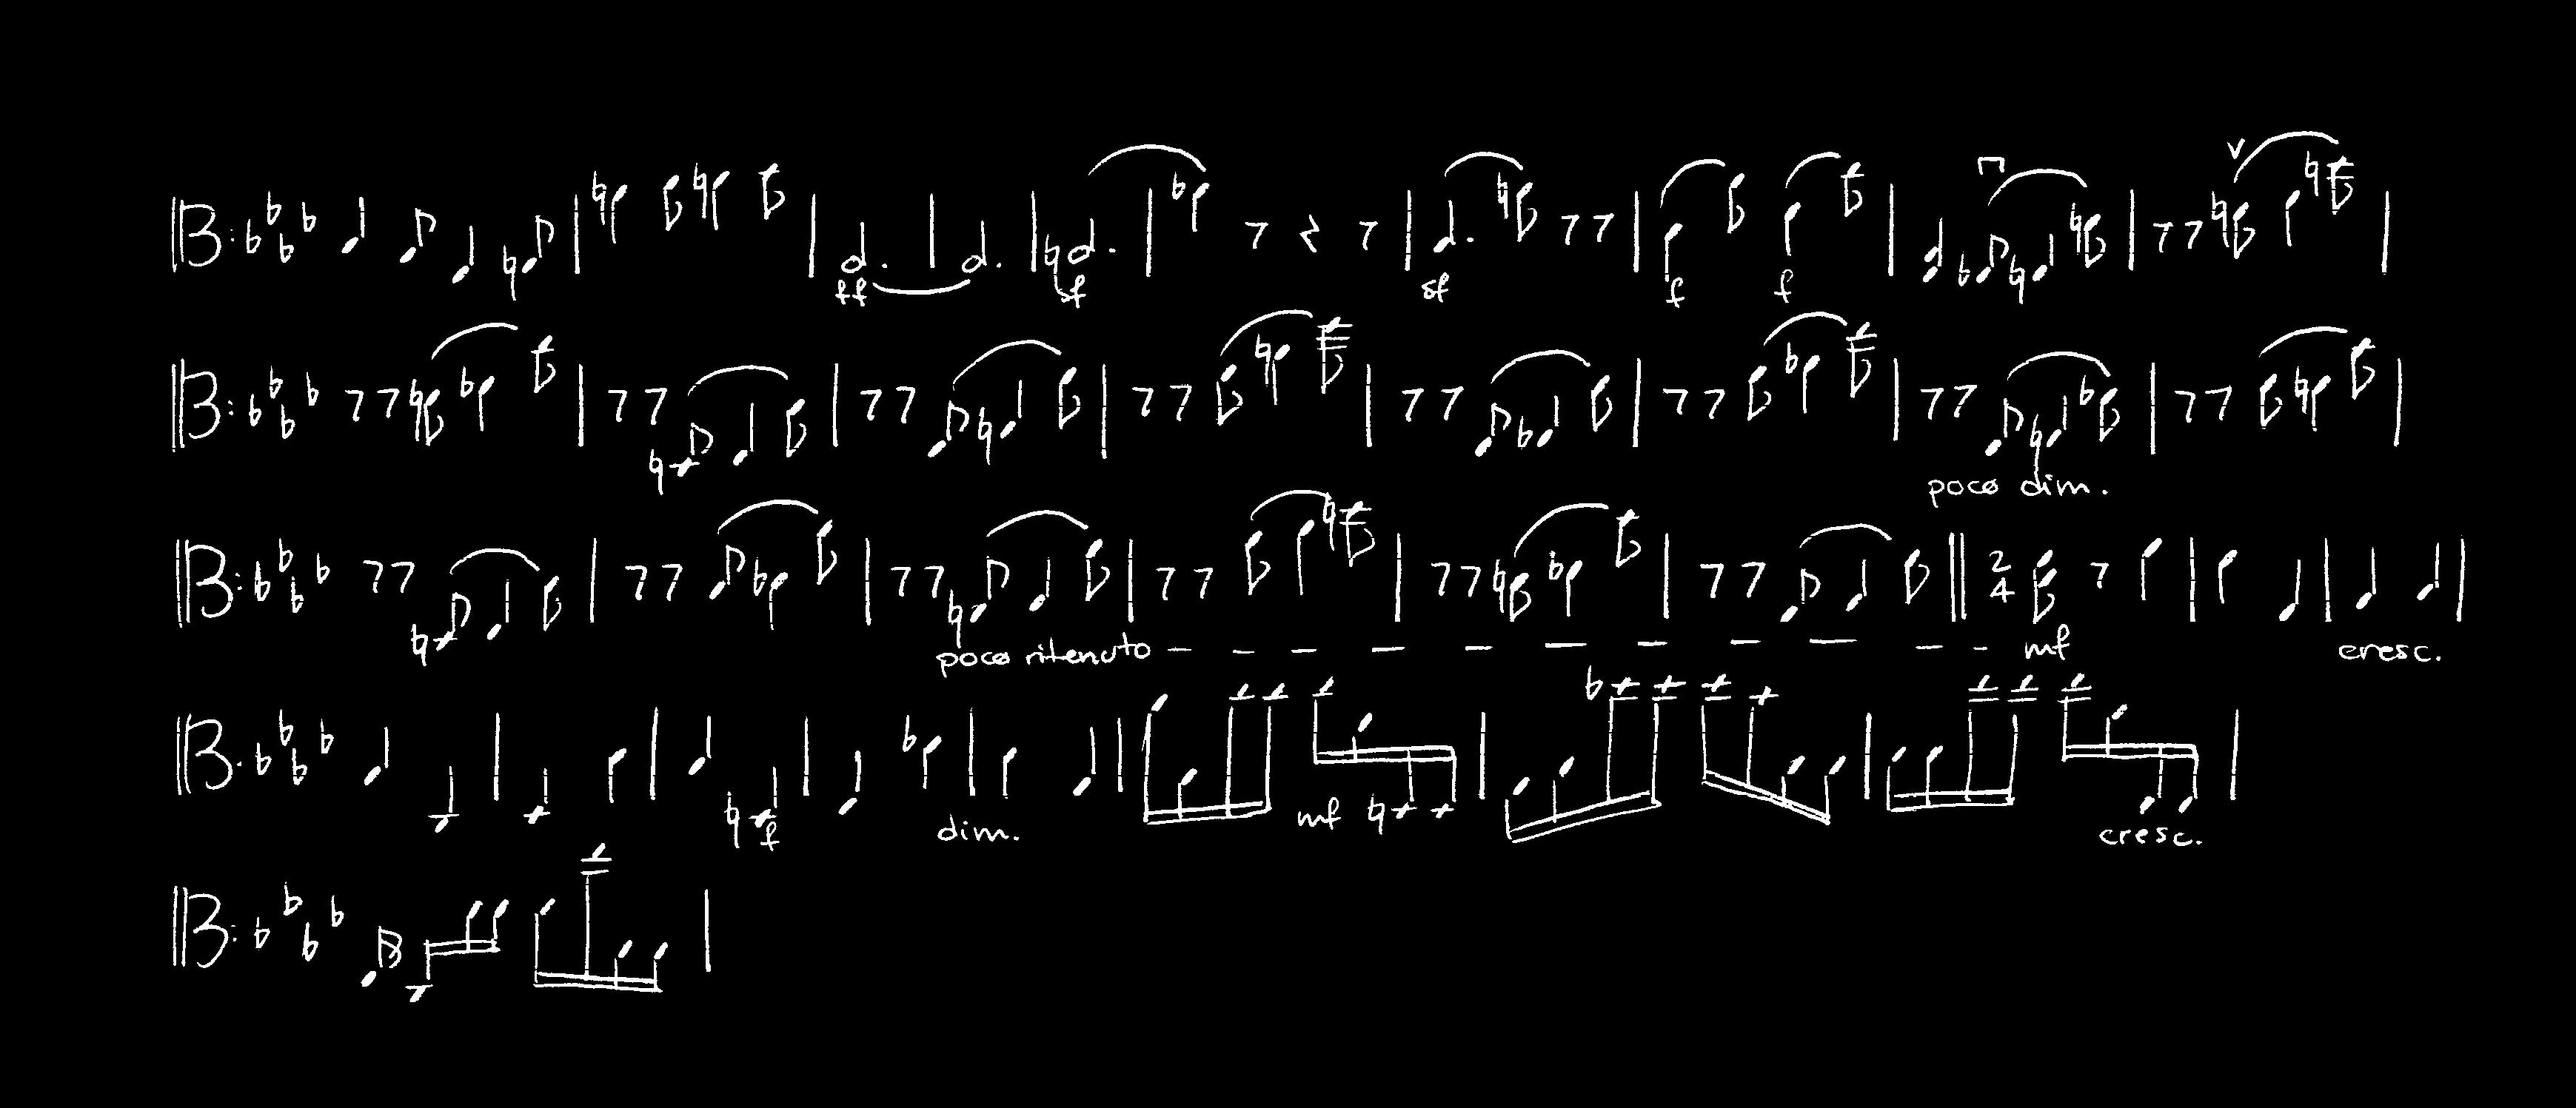 ff sf sf f f
poco dim.
2
4
poco ritenuto mf cresc.
f dim. mf cresc.